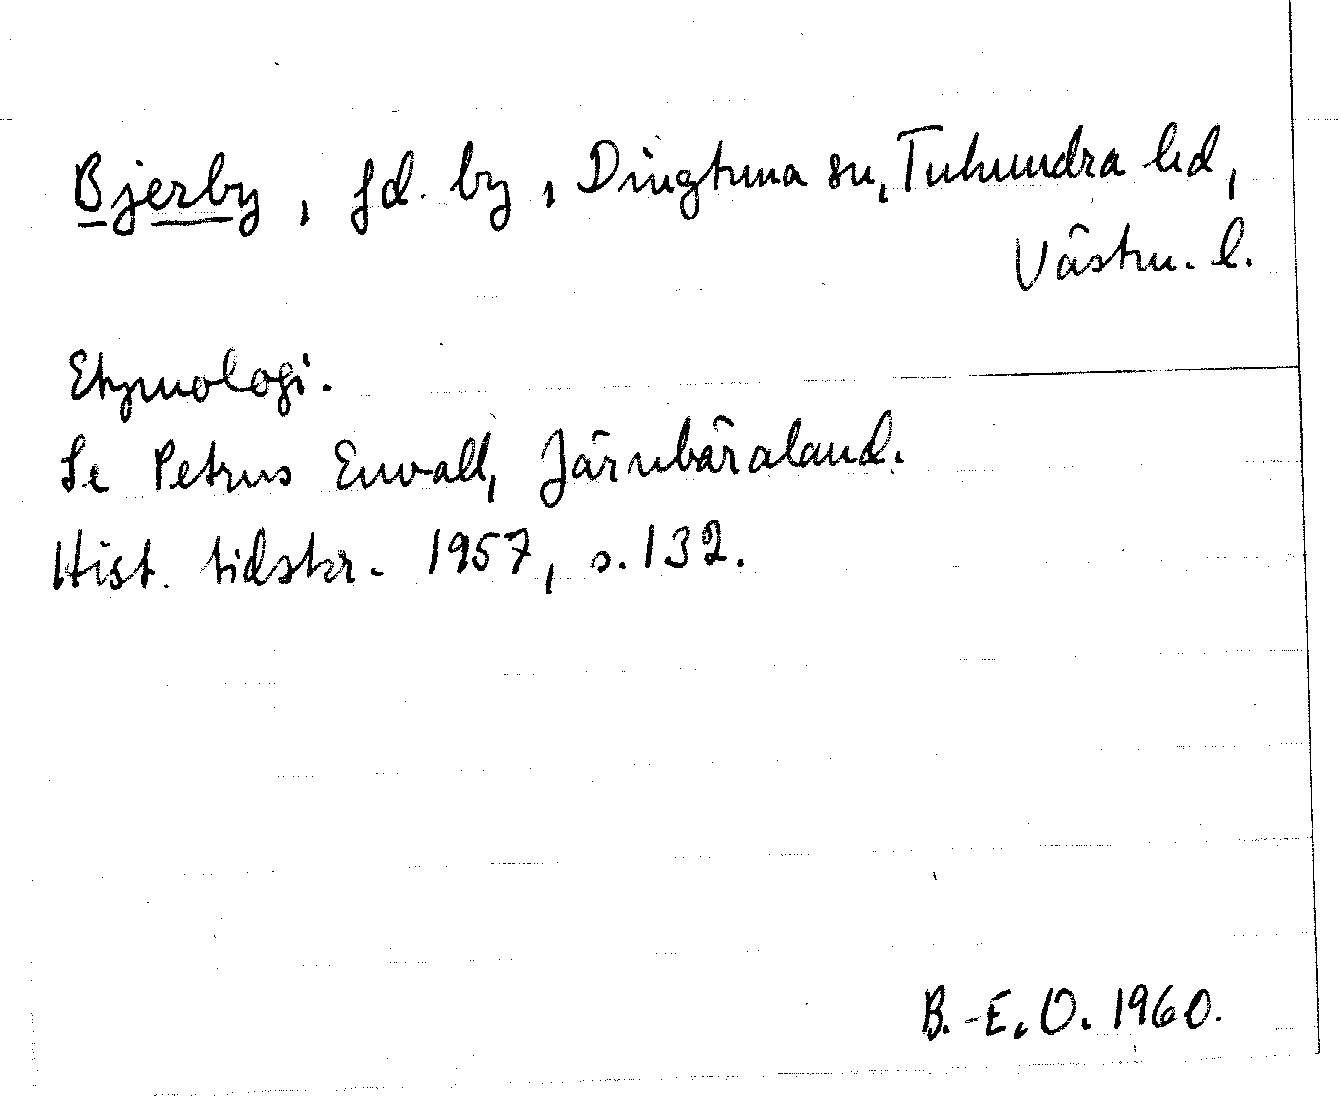 Bjerby, fd. by, Dingtuna sn, Tuhundra hd,
Västm. l.
Etymologi.
Se Petrus Envall, Järnbäraland.
Hist. tidskr. 1957, s. 132.
B.-E. O. 1960.